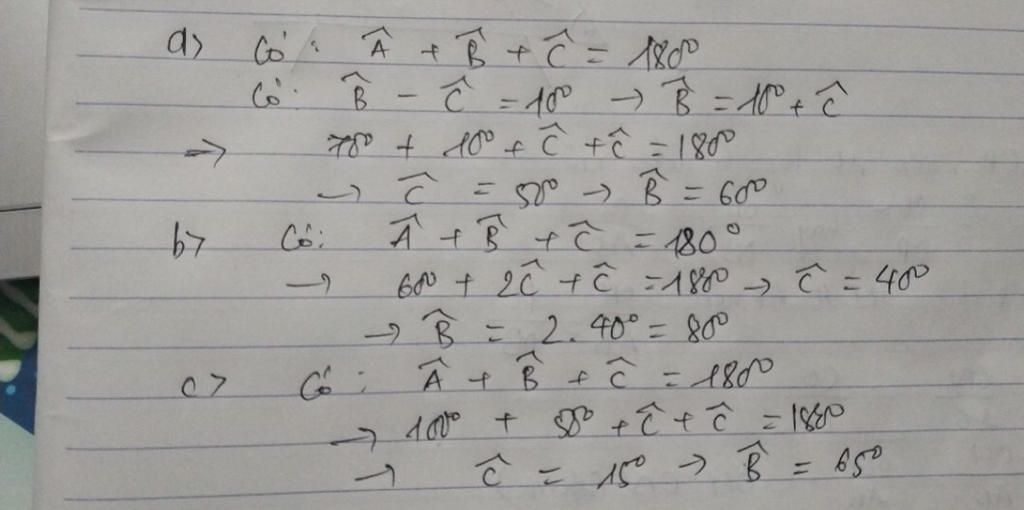 a> Có: Â + B̂ + Ĉ = 180°
Có: B̂ - Ĉ = 10° → B̂ = 10° + Ĉ
=> 70° + 10° + Ĉ + Ĉ = 180°
→ Ĉ = 50° → B̂ = 60°
b> Có: Â + B̂ + Ĉ = 180°
→ 60° + 2Ĉ + Ĉ = 180° → Ĉ = 40°
→ B̂ = 2. 40° = 80°
c> Có: Â + B̂ + Ĉ = 180°
→ 100° + 50° + Ĉ + Ĉ = 180°
→ Ĉ = 15° → B̂ = 65°